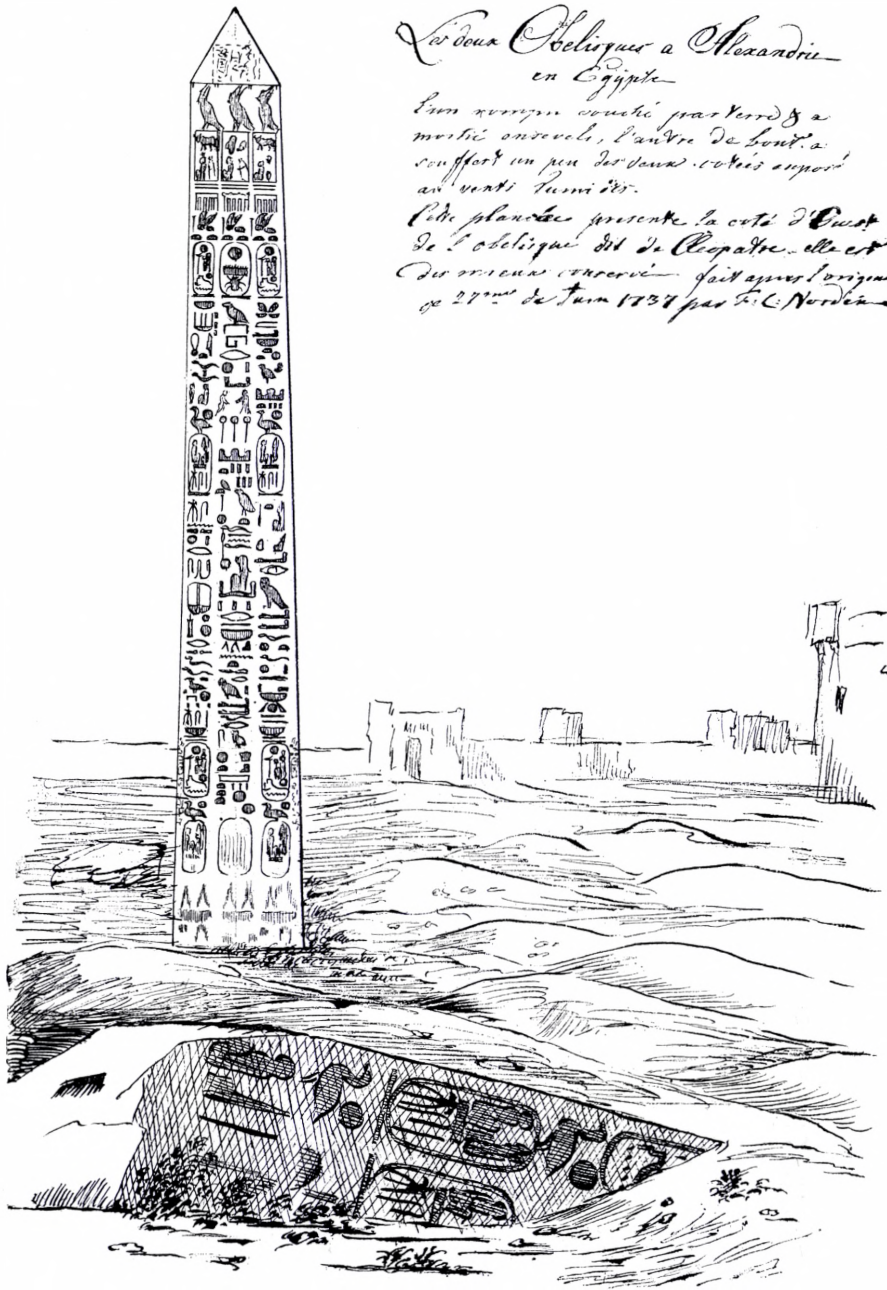 Les deux Obelisques a Alexandrie
en Egypte
l'un rompu couché par terre & a
moitié enseveli, l'autre de bout. a
souffert un peu des deux cotées exposé
au vents
Cette planche presente la coté d'Ouest
de l'obelisque dit de Cleopatre. elle est
des mieux conservé fait apres l'origin
ce 27me de Juin 1737 par F: L: Norden